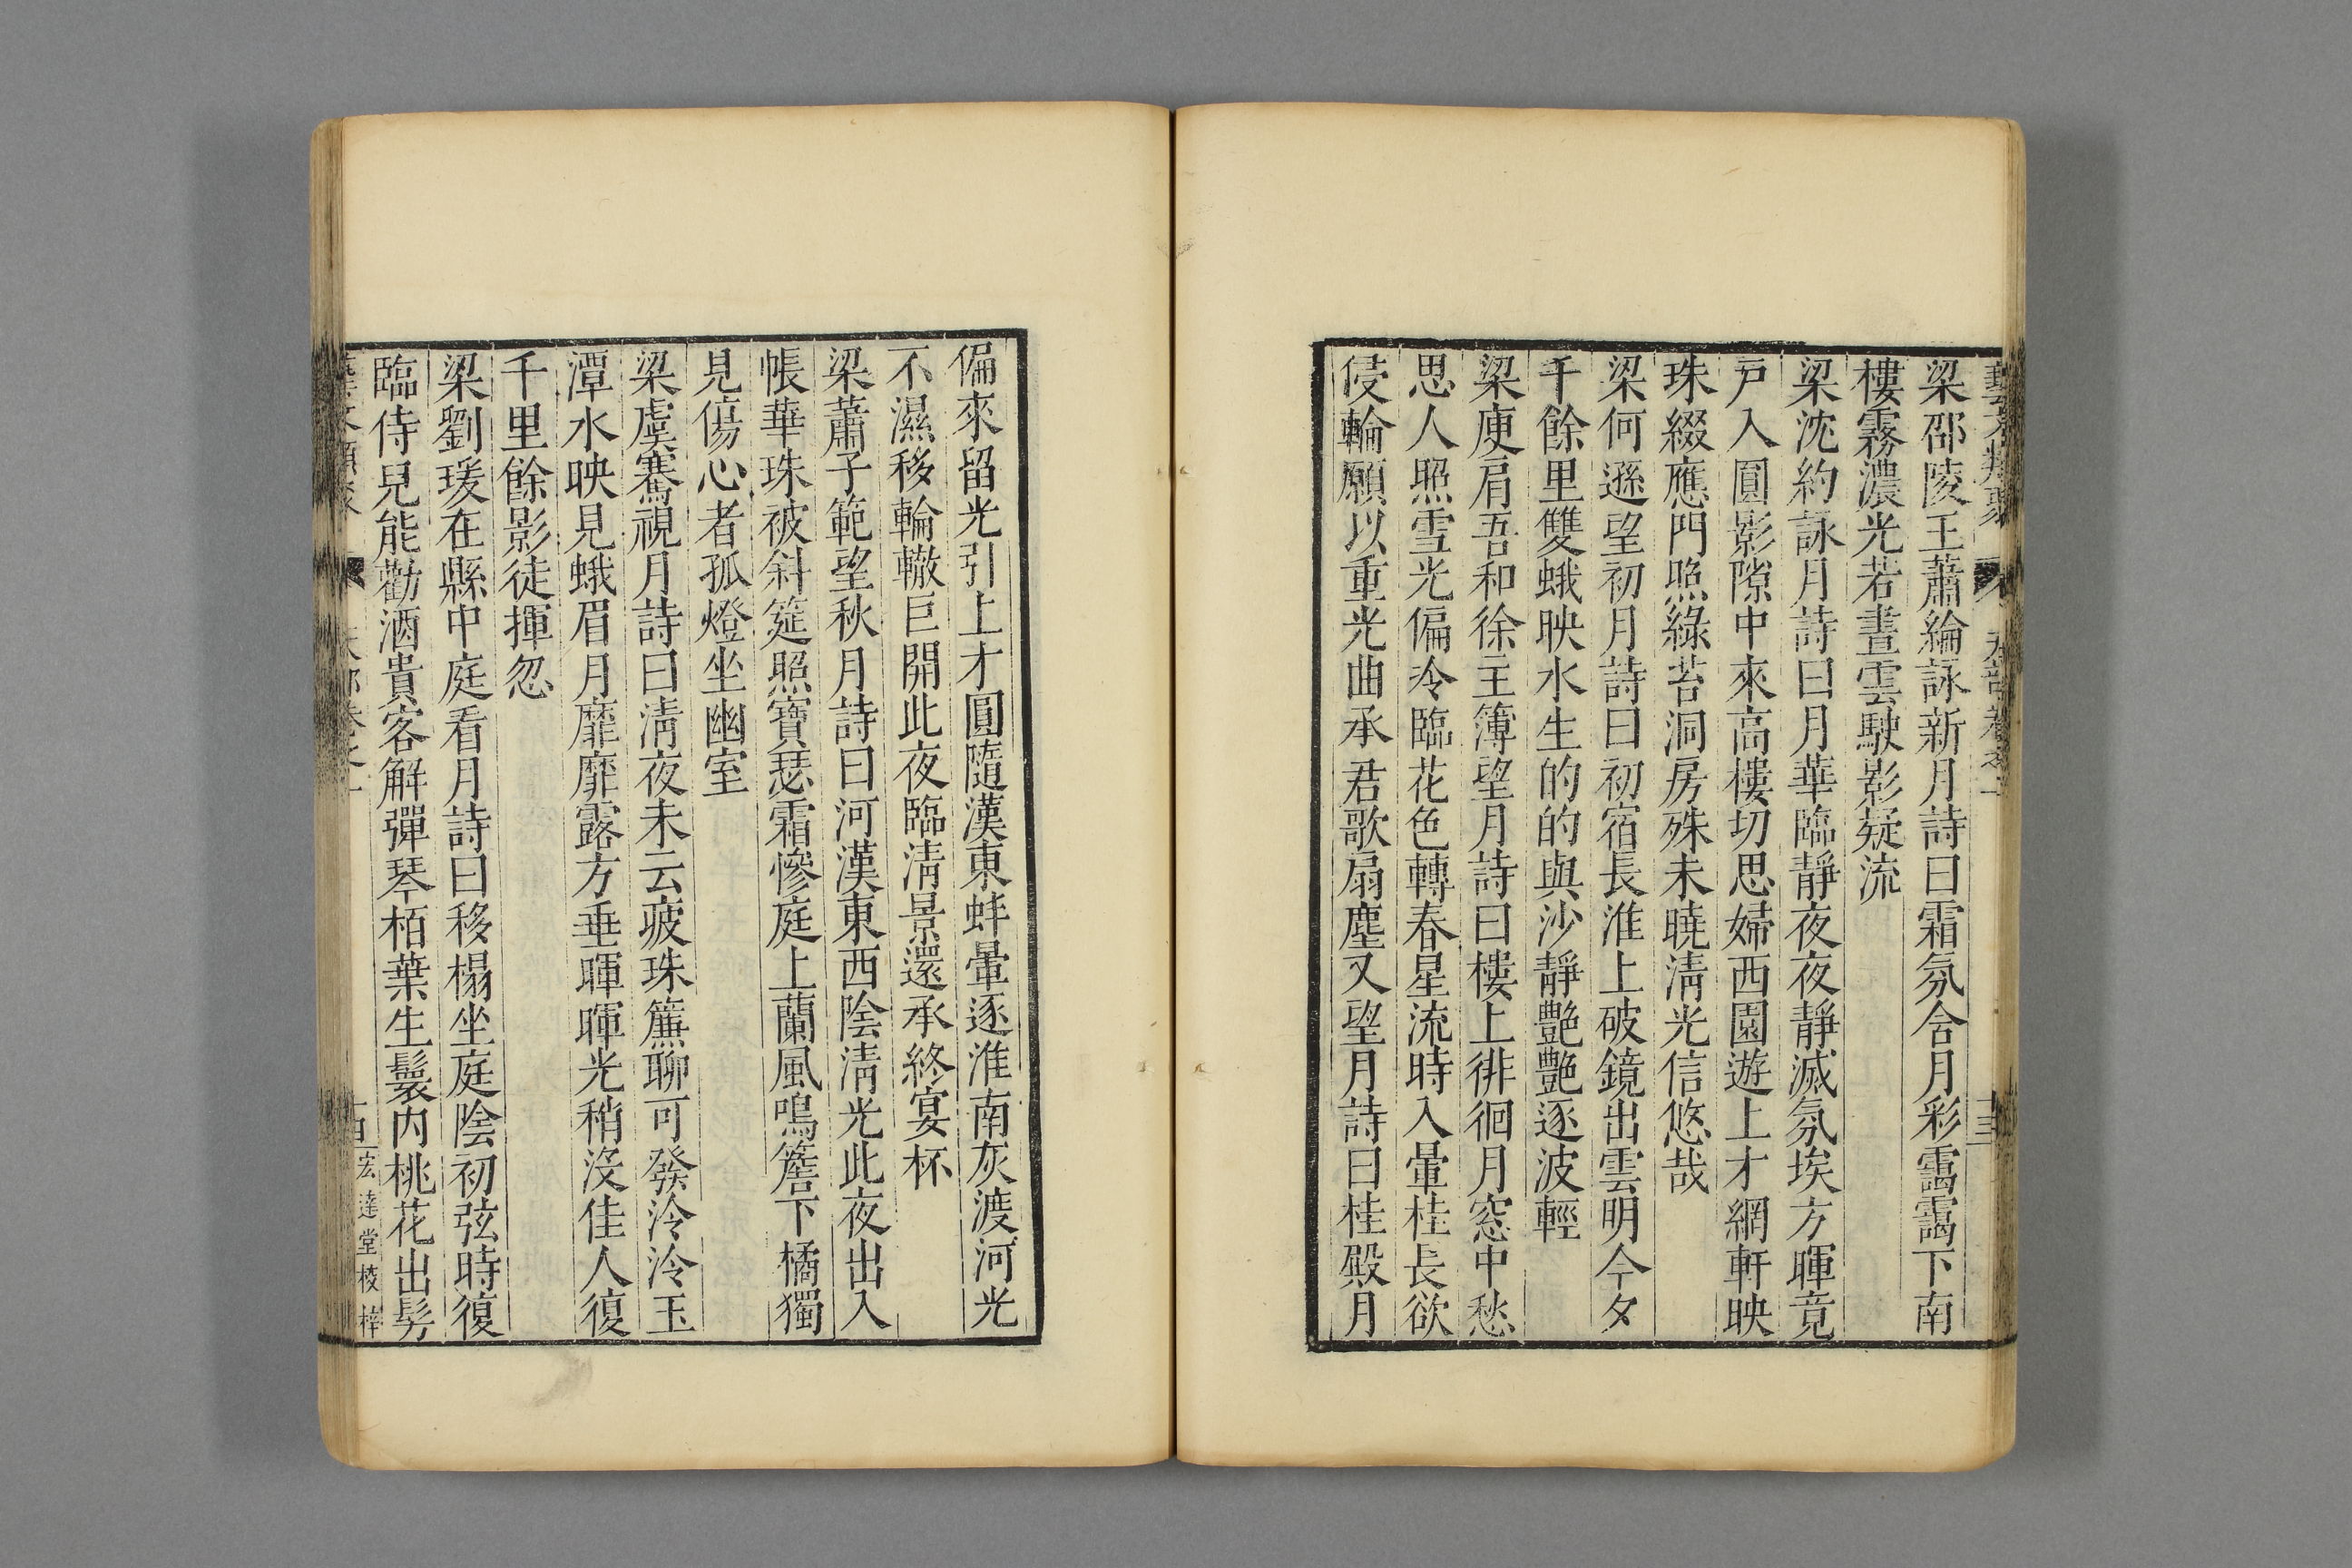 藝文類聚 天部卷之一 十三
梁邵陵王蕭綸詠新月詩曰霜氛含月彩靄靄下南
樓霧濃光若晝雲駛影疑流
梁沈約詠月詩曰月華臨靜夜夜靜滅氛埃方暉竟
戸入圓影隙中來高樓切思婦西園遊上才網軒映
珠綴應門照綠苔洞房殊未曉淸光信悠哉
梁何遜望初月詩曰初宿長淮上破鏡出雲明今夕
千餘里雙蛾映水生的的與沙靜艷艷逐波輕
梁庾肩吾和徐主簿望月詩曰樓上徘徊月窓中愁
思人照雪光偏冷臨花色轉春星流時入暈桂長欲
侵輪願以重光曲承君歌扇塵又望月詩曰桂殿月
偏來留光引上才圓隨漢東蚌暈逐淮南灰渡河光
不濕移輪轍巨開此夜臨淸景還承終宴杯
梁蕭子範望秋月詩曰河漢東西陰淸光此夜出入
帳華珠被斜筵照寶瑟霜慘庭上蘭風鳴簷下橘獨
見傷心者孤燈坐幽室
梁虞騫視月詩曰淸夜未云疲珠簾聊可發泠泠玉
潭水映見蛾眉月靡靡露方垂暉暉光稍沒佳人復
千里餘影徒揮忽
梁劉瑗在縣中庭看月詩曰移榻坐庭陰初弦時復
臨侍兒能勸酒貴客解彈琴栢葉生鬟內桃花出髣
藝文類聚 天部卷之一 十四 宏達堂校梓